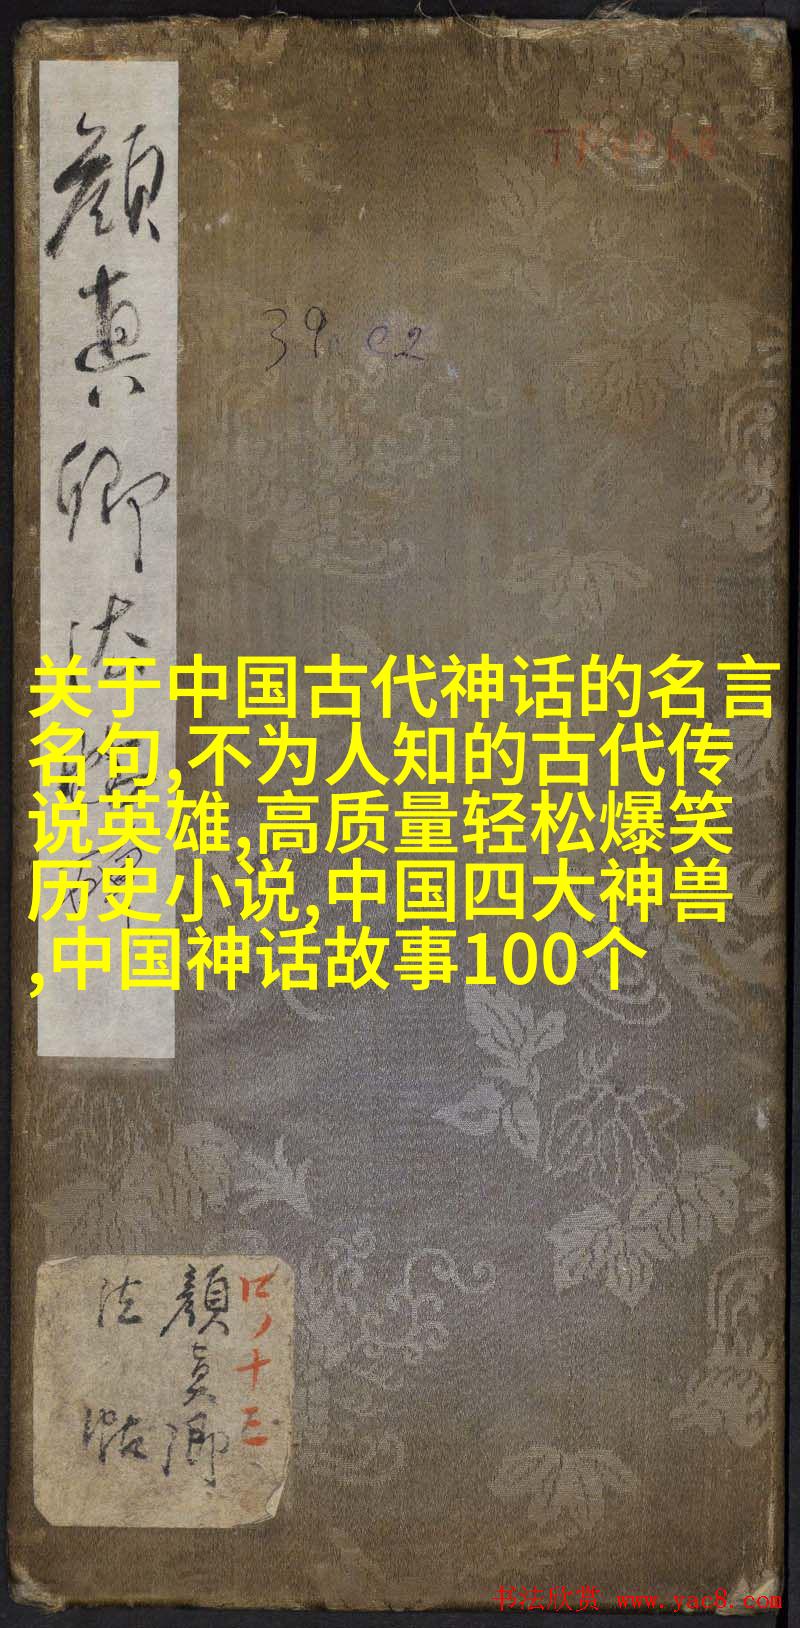 顔真卿法
TP2068
39.e2
关于中国古代神话的名言
名句,不为人知的古代传
说英雄,高质量轻松爆笑
历史小说,中国四大神兽
,中国神话故事100个
顔真卿
法帖
书法欣赏 www.yac8.com